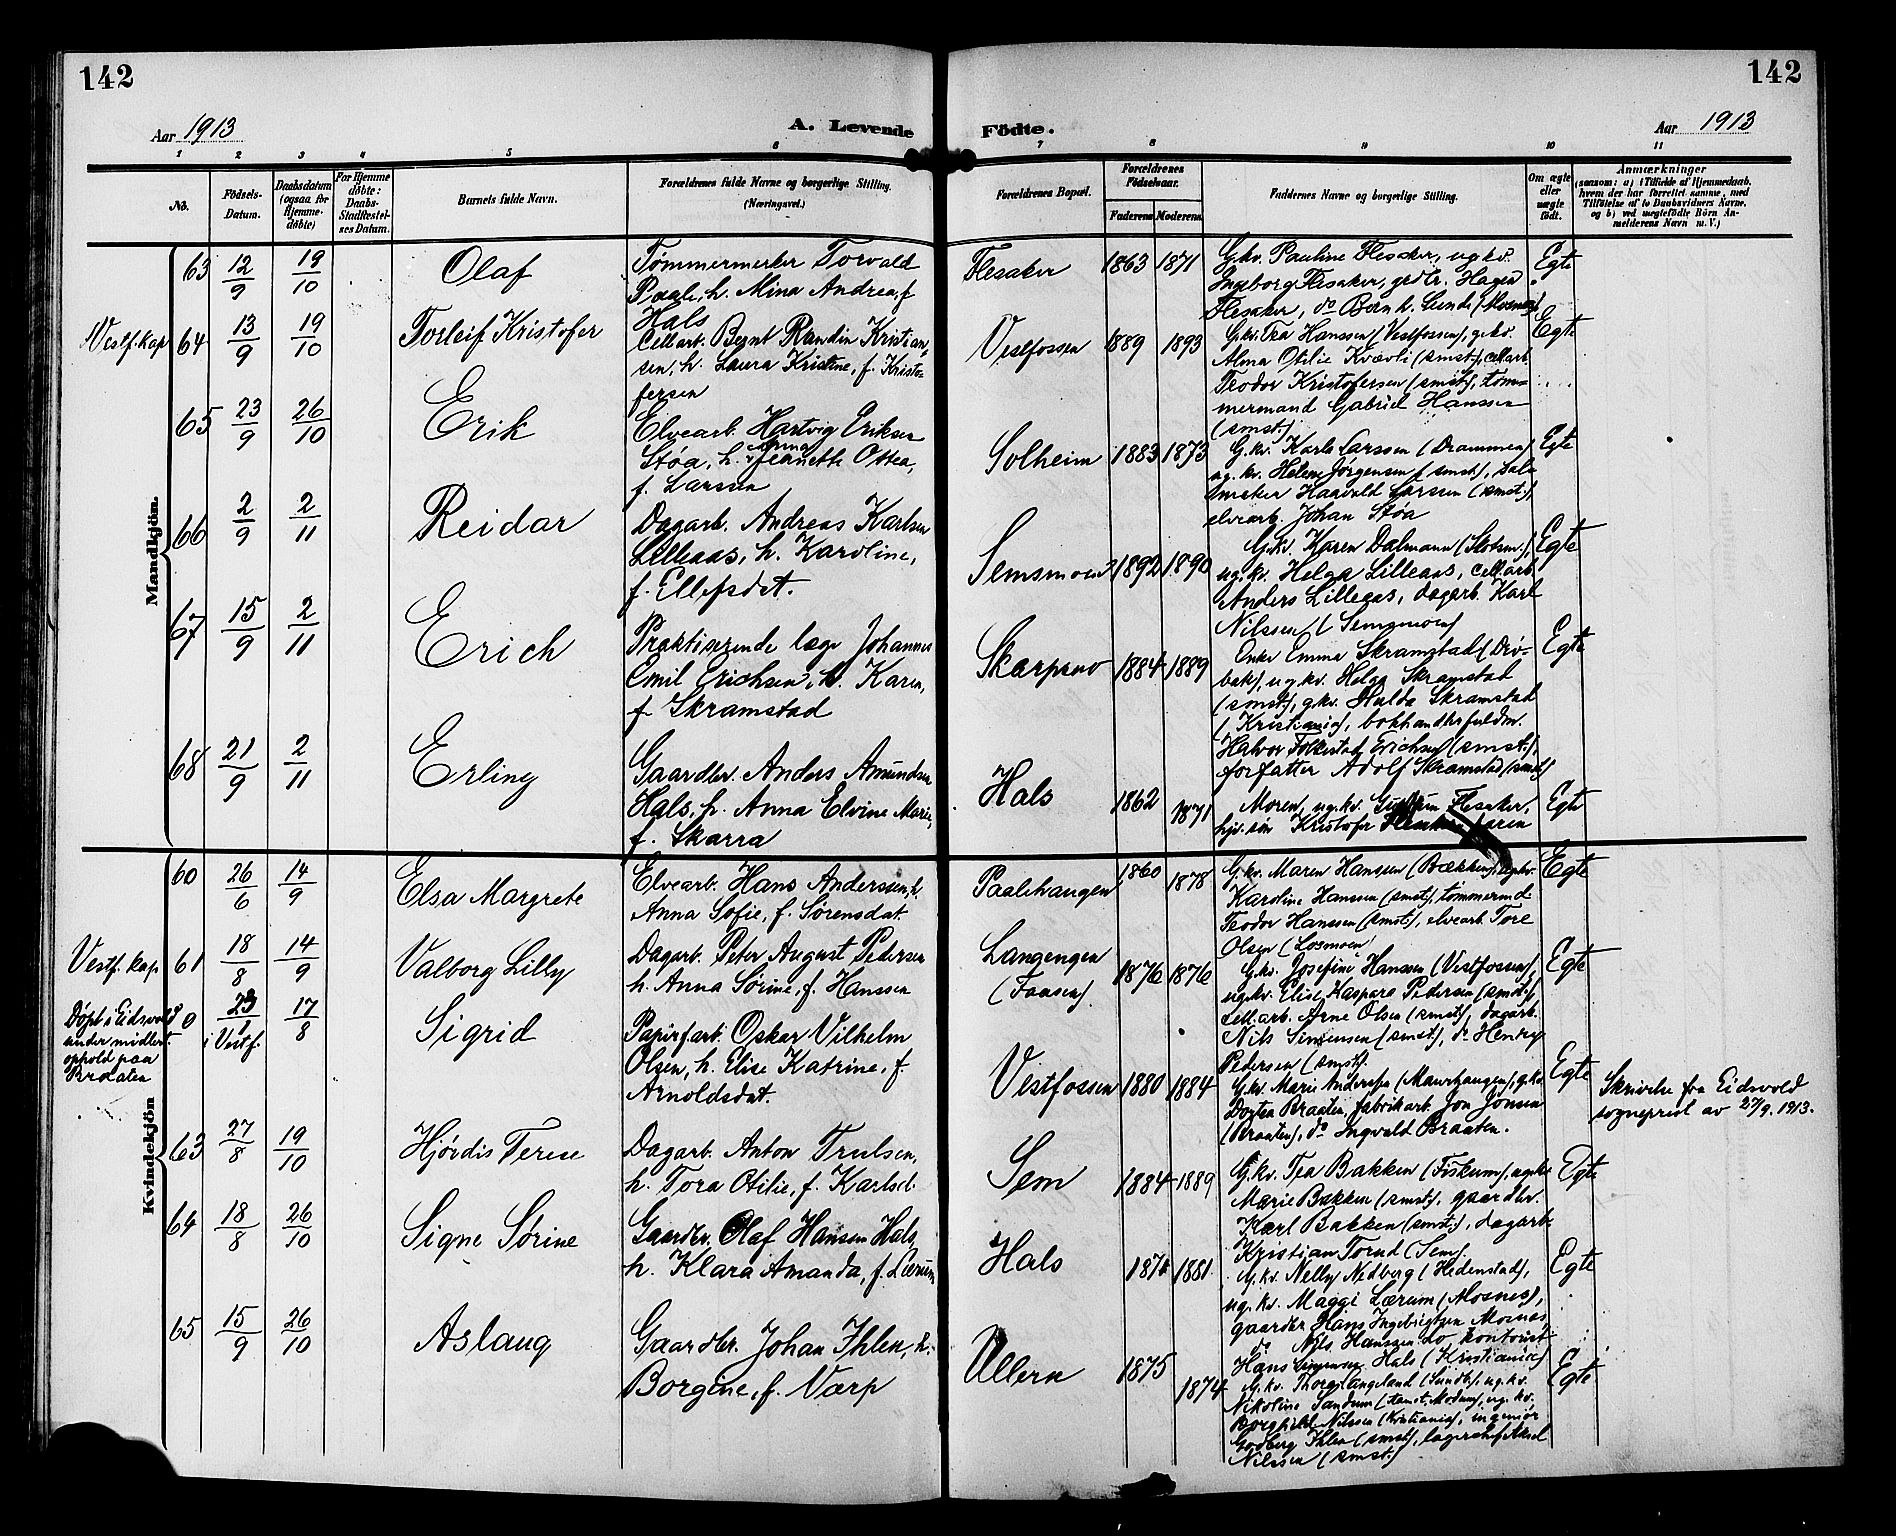 142
142
Aar 1913
A. Levende
Födte.
Aar 1913
1 2 3 4 5 6 7 8 9 10 11
No.
Födsels-Datum.
Daabsdatum (ogsaa for Hjemmedöbte)
For Hjemmedöbte: Daabs-Stadfæstelses Datum.
Barnets fulde Navn.
Forældrenes fulde Navne og borgerlige Stilling.
(Næringsvei.)
Forældrenes Bopæl.
Forældrenes Födselsaar.
Faderens Moderens.
Faddernes Navne og borgerlige Stilling.
Om ægte eller uægte födt.
Anmærkninger
(saasom: a) i Tilfælde af Hjemmedaab, hvem der har forrettet samme, med Tilföielse af to Daabsvidners Navne, og b) ved uegtefödte Börn Anmelderens Navn m. V.)
Mandkjön.
63 12/9 19/10 Olaf
Tømmermerker Torvald
Paale, h. Mina Andrea, f
Hals
Flesaker 1863 1871
G.kv. Pauline Flesaker, ug.kv.
Ingeborg Flesaker, grdbr. Hagen
Flesaker,
Egte
Vestf. kap 64 13/9 19/10 Torleif Kristofer
Cellarb. Bernt Randin Kristian-
sen, h. Laura Kristine, f. Kristo-
fersen
Vestfossen 1889 1893
G.kv. Tea Hanssen (Vestfossen), g.kv.
Alma Otilie Kvævli (smst), cellarb
Teodor Kristofersen (smst), tøm-
mermand Gabriel Hanssen
(smst.)
Egte
65 23/9 26/10 Erik
Elvearb. Hartvig Eriksen
Støa, h. Anna Jeanette Ottea,
f. Larsen
Solheim 1883 1873
G.kv. Karla Larssen (Drammen)
ug. kv. Helene Jørgensen (smst),
Haavald Larssen (smst.),
elvearb. Johan Støa
Egte
66 2/9 2/11 Reidar
Dagarb. Andreas Karlsen
Lilleaas, h. Karoline,
f. Ellefsdat.
Semsmoen 1892 1890
G.kv. Karen Dalmann
ug. kv. Helga Lilleaas, cell.arb.
Anders Lilleaas, dagarb. Karl
Nilssen (Semsmoen)
Egte
67 15/9 2/11 Erich
Praktiserende læge Johannes
Emil Erichsen, h. Karen,
f. Skramstad
Skarpsno 1884 1889
Enke Emma Skramstad (Drø-
bak), ug.kv. Helga Skramstad
(smst), g.kv. Hulda Skramstad
(Kristiania), bokhandlerfuldm.
Halvor Folkestad Erichsen (smst.),
forfatter Adolf Skramstad (smst)
Egte
68 21/9 2/11 Erling
Gaardbr. Anders Amundsen
Hals, h. Anna Elvine Marie,
f. Skarra
Hals 1862 1871
Moren, ug. kv. Gudrun Flesaker,
hjv. søn Kristofer
Egte
Kvindekjön
60 26/6 14/9 Elsa Margrete
Elvearb. Hans Anderssen, h.
Anna Sofie, f. Sørensdat.
Paalehaugen 1860 1878
G.kv. Maren Hansen (Bækken), ug.kv.
Karoline Hanssen (smst), tømmermd
Teodor Hanssen (smst), elvearb. Tore
Olsen (Losmoen
Egte
Vestf. kap 61 18/8 14/9 Valborg Lilly
Dagarb. Peter August Pedersen
h. Anna Sørine, f. Hanssen
Langengen
(Faasen) 1876 1876
G.kv. Josefine Hanssen (Vestfossen),
ug.kv. Elise Kaspara Pedersen (smst.),
Cell.arb. Arne Olsen (smst), dagarb.
Nils Simensen (smst), do Henry
Pedersen (smst).
Egte
Døpt i Eidsvold
under midlert.
ophold paa
Braaten
0 17/8 Sigrid
i Vestf.
Papirf.arb. Oskar Vilhelm
Olsen, h. Elise Katrine, f.
Arnoldsdat.
Vestfossen 1880 1884
G.kv. Marie (Maurhaugen), g.kv.
Braaten, fabrikarb. Jon Jonsen
(Braaten), do Ingvald Braaten.
Egte
Skrivelse fra Eidsvold
sogneprest av 27/9. 1913.
63 27/8 19/10 Hjørdis Terese
Dagarb. Anton Trulsen,
h. Tora Otilie, f. Karlsd.
Sem 1884 1889
G.kv. Tea Bakken (Fiskum), ug.kv
Marie Bakken (smst), gaardbr.
Karl Bakken (smst), dagarb.
Kristian Torud (Sem).
Egte
64 18/8 26/10 Signe Sørine
Gaardbr. Olaf Hansen Hals,
h. Klara Amanda, f. Lærum
Hals 1881
G.kv. Nelly Nedberg (Hedenstad),
ug. kv. Maggi Lærum (Mosnes),
gaardbr Hans Ingebrigtsen Mosnes,
do Nils Hanssen do kontorist
Hans Hals (Kristiania)
Egte
65 15/9 26/10 Aslaug
Gaardbr. Johan Ihlen, h.
Borgine, f. Varp
Ullern 1875 1874
G.kv. Langeland ug.kv.
Nikoline Sandum ug. kv.
Borghild Nilssen (Kristiania), ingeniør
Godberg Ihlen (smst), lagerchef Aksel
Nilssen (smst.)
Egte